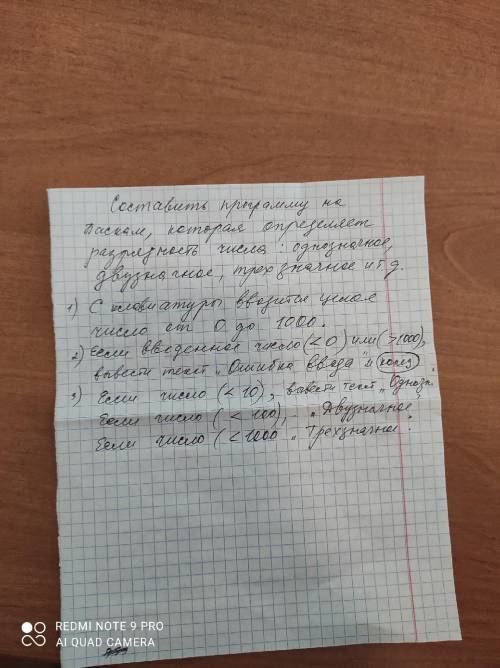 Составить программу на
Паскали, которая определяет
разрядность числа: однозначное,
двузначное, трехзначное и т.д.
1) С клавиатуры вводится целое
число от 0 до 1000.
2) Если введенное число (<0) или (>1000),
вывести текст "Ошибка ввода" и
3) Если число (<10), вывести текст "Однозн.
Если число (<100), - "Двузначное"
Если число (<1000 "Трехзначное".
REDMI NOTE 9 PRO
AI QUAD CAMERA